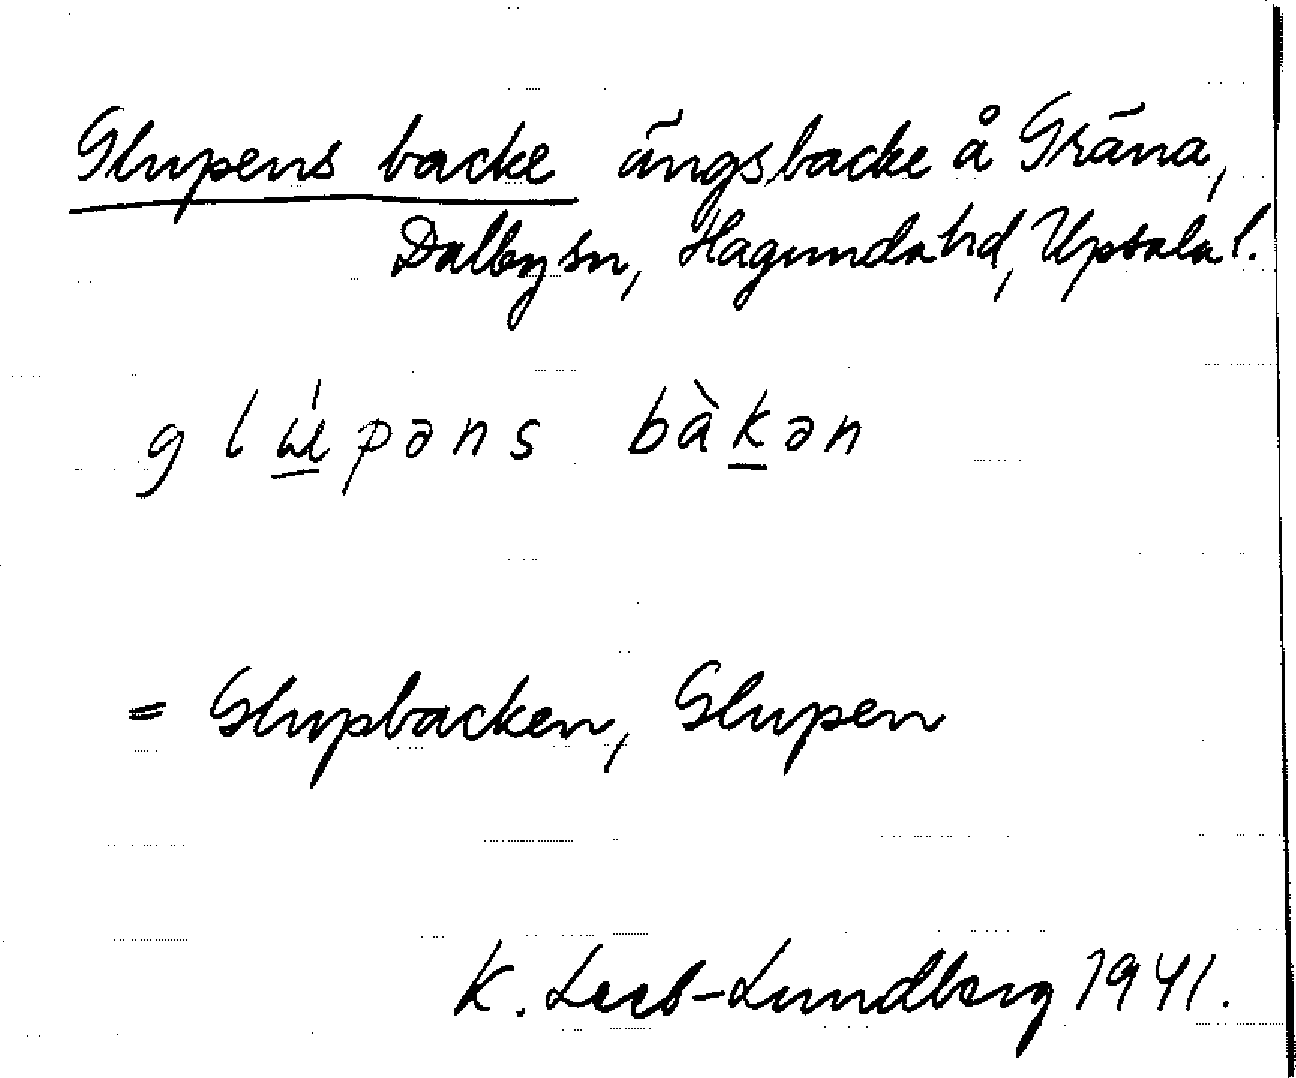 Glupens backe ängsbacke å Gräna,
Dalby sn, Hagunda hd, Upsala l.
glɯ́pəns bàkən
= Glupbacken, Glupen
K. Leeb-Lundberg 1941.